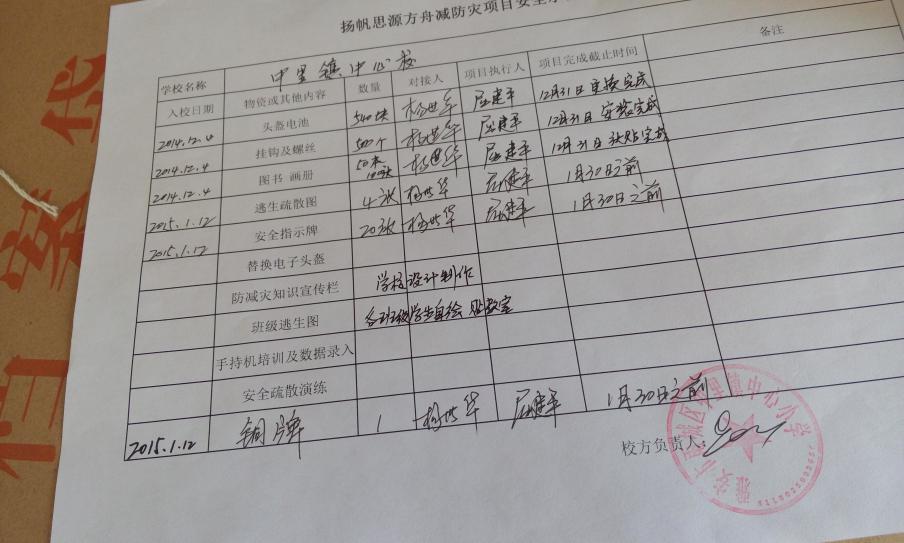 扬帆思源方舟减防灾项目安全
学校名称 中里镇中心校
入校日期 物资或其他内容 数量 对接人 项目执行人 项目完成截止时间 备注
2014.12.4 头盔电池 500块 杨世华 屈建平 12月31日更换完成
2014.12.4 挂钩及螺丝 500个 杨世华 屈建平 12月31日安装完成
2014.12.4 图书 画册 50本 杨世华 屈建平 12月31日张贴完成
2015.1.12 逃生疏散图 4张 杨世华 屈建平 1月30日之前
2015.1.12 安全指示牌 20张 杨世华 屈建平 1月30日之前
替换电子头盔
防减灾知识宣传栏 学校设计制作
班级逃生图 各班级学生自绘 贴教室
手持机培训及数据录入
安全疏散演练
2015.1.12 铜牌 1 杨世华 屈建平 1月30日之前
校方负责人:
雅安市雨城区中里镇中心小学
档案袋